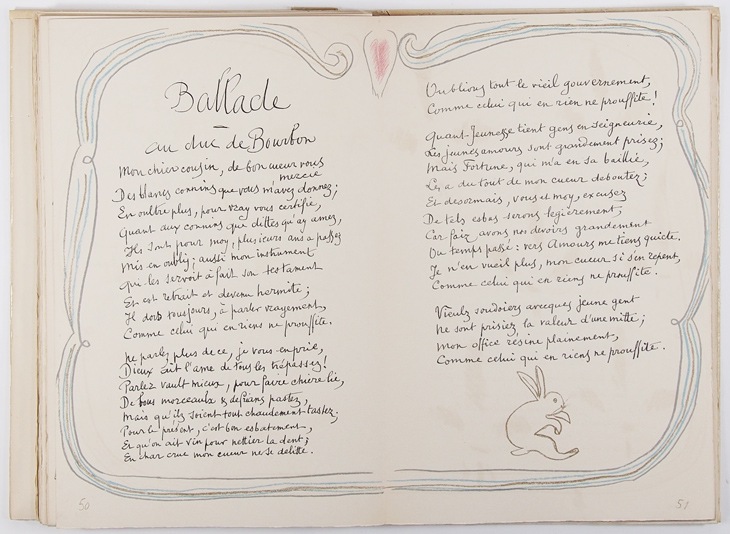 Ballade
—
au duc de Bourbon
Mon chier cousin, de bon cueur vous
mercie
Des blancs connins que vous m'avez donnez;
En oultre plus, pour vray vous certifie,
Quant aux connins que dittes qu'ay amez,
Ils sont pour moy, plusieurs ans a passez
Mis en oubly; aussi mon instrument
Qui les servoit a fait son testament
Et est retrait et devenu hermite;
Il dort tousjours, à parler vrayement,
Comme celui qui en riens ne prouffite.
Ne parlez plus de ce, je vous en prie,
Dieux ait l'ame de tous les trépassez!
Parler vault mieux, pour faire chiere lie,
De bons morceaulx & de frians pastez,
Mais qu'ils soient tout chaudement tastez;
Pour le présent, c'est bon esbatement,
Et qu'on ait vin pour nettier la dent;
En char crue mon cueur ne se delitte.
50
Oublions tout le vieil gouvernement,
Comme celui qui en rien ne prouffite!
Quant Jeunesse tient gens en seigneurie,
Les jeunes amours sont grandement prisez;
Mais Fortune, qui m'a en sa baillie,
Les a du tout de mon cueur deboutez;
Et desormais, vous et moy, excusez
De telz esbas serons legierement,
Car faiz avons nos devoirs grandement
Ou temps passé: vers Amours me tiens quicte.
Je n'en vueil plus, mon cueur si s'en repent,
Comme celui qui en riens ne prouffite.
Vieulz soudoiers avecques jeune gent
Ne sont prisiez la valeur d'une mitte;
Mon office resine plainement,
Comme celui qui en riens ne prouffite.
51